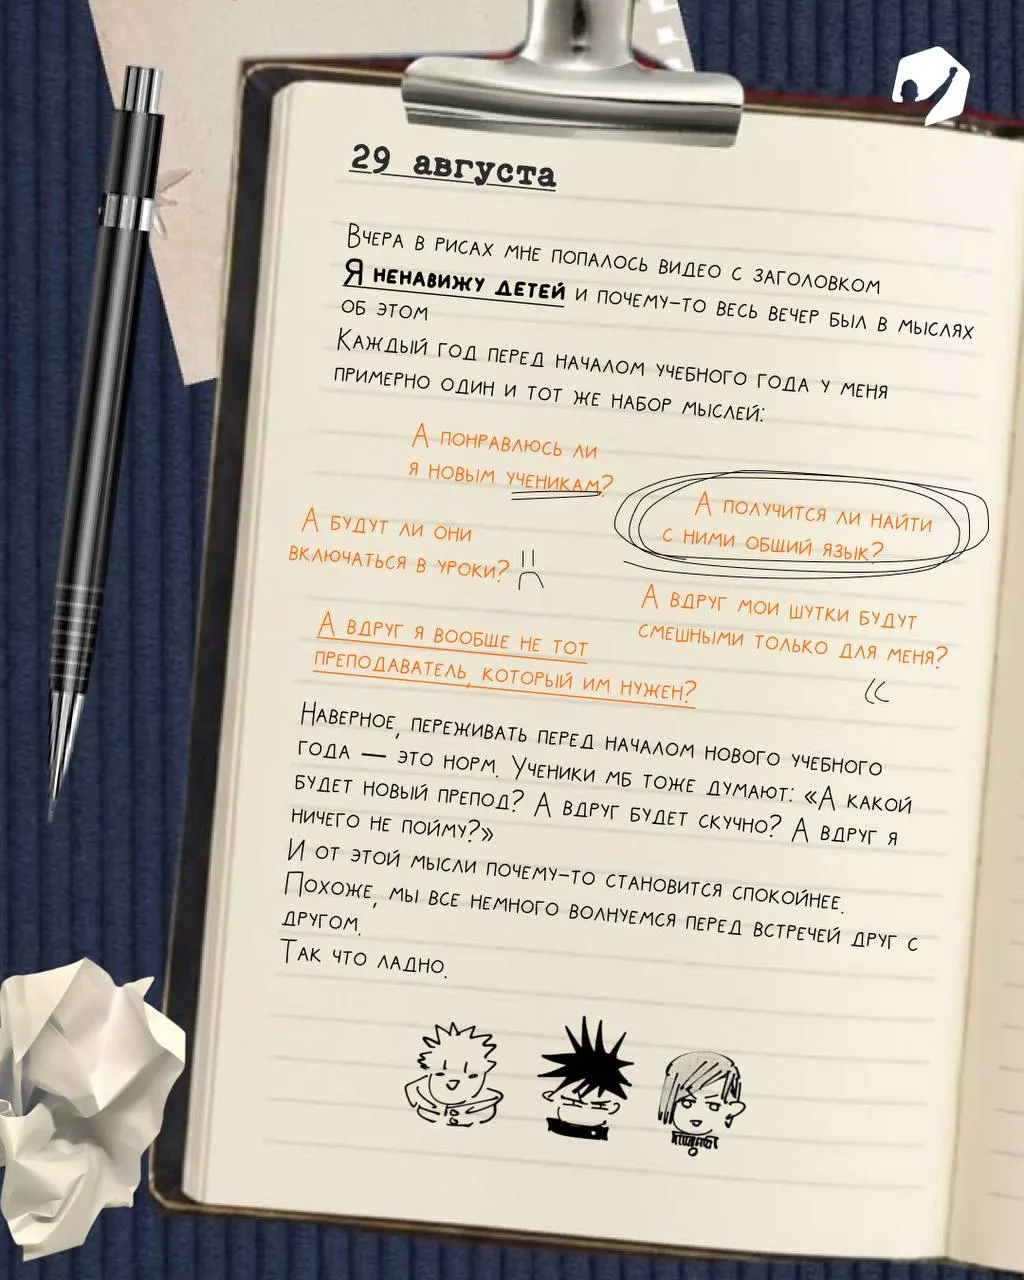 29 августа
Вчера в рисах мне попалось видео с заголовком
Я ненавижу детей и почему-то весь вечер был в мыслях
об этом
Каждый год перед началом учебного года у меня
примерно один и тот же набор мыслей:
А понравлюсь ли
я новым ученикам?
А получится ли найти
с ними общий язык?
А будут ли они
включаться в уроки?
А вдруг мои шутки будут
смешными только для меня?
А вдруг я вообще не тот
преподаватель, который им нужен?
Наверное, переживать перед началом нового учебного
года — это норм. Ученики мб тоже думают: «А какой
будет новый препод? А вдруг будет скучно? А вдруг я
ничего не пойму?»
И от этой мысли почему-то становится спокойнее.
Похоже, мы все немного волнуемся перед встречей друг с
другом.
Так что ладно.